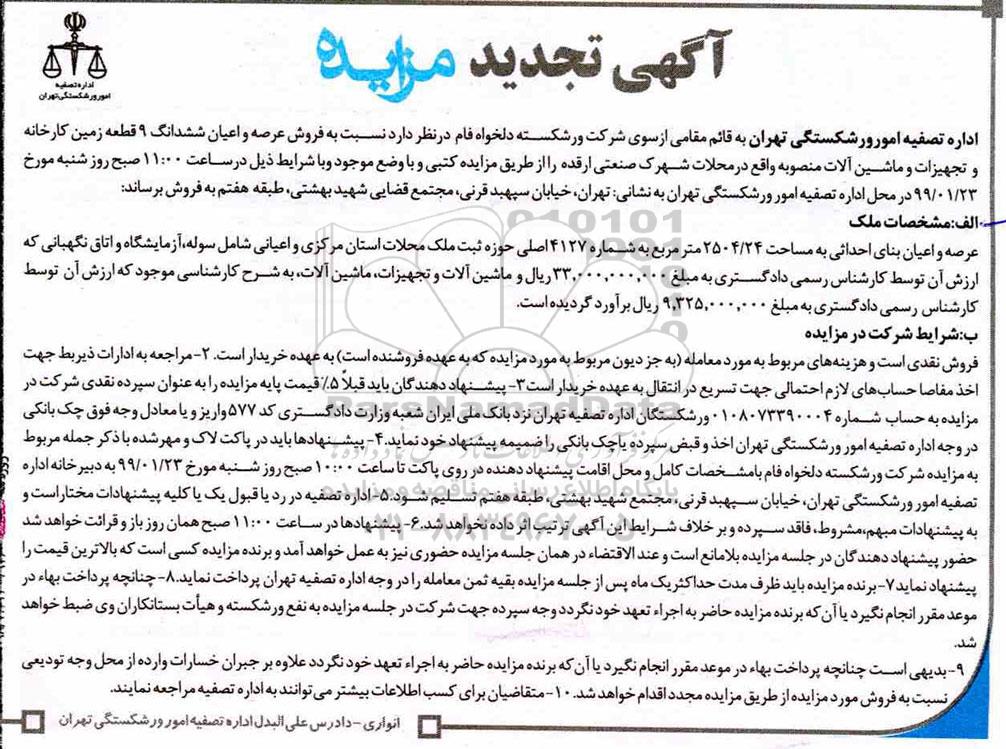 آگهی تجدید مزایده
اداره تصفیه
امور ورشکستگی تهران
اداره تصفیه امور ورشکستگی تهران به قائم مقامی ازسوی شرکت ورشکسته دلخواه فام درنظر دارد نسبت به فروش عرصه و اعیان ششدانگ ۹ قطعه زمین کارخانه
و تجهیزات و ماشین آلات منصوبه واقع در محلات شهرک صنعتی ارقده را از طریق مزایده کتبی و با وضع موجود وبا شرایط ذیل درساعت ۱۱:۰۰ صبح روز شنبه مورخ
۹۹/۰۱/۲۳ در محل اداره تصفیه امور ورشکستگی تهران به نشانی: تهران، خیابان سپهبد قرنی، مجتمع قضایی شهید بهشتی، طبقه هفتم به فروش برساند:
الف: مشخصات ملک
عرصه و اعیان بنای احداثی به مساحت ۲۵۰۴/۲۴ متر مربع به شماره ۴۱۲۷ اصلی حوزه ثبت ملک محلات استان مرکزی و اعیانی شامل سوله، آزمایشگاه و اتاق نگهبانی که
ارزش آن توسط کارشناس رسمی دادگستری به مبلغ ۳۳,۰۰۰,۰۰۰,۰۰۰ ریال و ماشین آلات و تجهیزات، ماشین آلات، به شرح کارشناسی موجود که ارزش آن توسط
کارشناس رسمی دادگستری به مبلغ ۹,۳۲۵,۰۰۰,۰۰۰ ریال برآورد گردیده است.
ب: شرایط شرکت در مزایده
فروش نقدی است و هزینه‌های مربوط به مورد معامله (به جز دیون مربوط به مورد مزایده که به عهده فروشنده است) به عهده خریدار است. ۲-مراجعه به ادارات ذیربط جهت
اخذ مفاصا حساب‌های لازم احتمالی جهت تسریع در انتقال به عهده خریدار است ۳- پیشنهاد دهندگان باید قبلاً ۵٪ قیمت پایه مزایده را به عنوان سپرده نقدی شرکت در
مزایده به حساب شماره ۰۱۰۸۰۷۳۳۹۰۰۰۴ ورشکستگان اداره تصفیه تهران نزد بانک ملی ایران شعبه وزارت دادگستری کد ۵۷۷ واریز و یا معادل وجه فوق چک بانکی
در وجه اداره تصفیه امور ورشکستگی تهران اخذ و قبض سپرده یا چک بانکی را ضمیمه پیشنهاد خود نماید. ۴- پیشنهادها باید در پاکت لاک و مهر شده با ذکر جمله مربوط
به مزایده شرکت ورشکسته دلخواه فام با مشخصات کامل و محل اقامت پیشنهاد دهنده در روی پاکت تا ساعت ۱۰:۰۰ صبح روز شنبه مورخ ۹۹/۰۱/۲۳ به دبیرخانه اداره
تصفیه امور ورشکستگی تهران، خیابان سپهبد قرنی، مجتمع شهید بهشتی، طبقه هفتم تسلیم شود. ۵- اداره تصفیه در رد یا قبول یک یا کلیه پیشنهادات مختار است و
به پیشنهادات مبهم، مشروط، فاقد سپرده و بر خلاف شرایط این آگهی ترتیب اثر داده نخواهد شد. ۶- پیشنهادها در ساعت ۱۱:۰۰ صبح همان روز باز و قرائت خواهد شد
حضور پیشنهاد دهندگان در جلسه مزایده بلامانع است و عند الاقتضاء در همان جلسه مزایده حضوری نیز به عمل خواهد آمد و برنده مزایده کسی است که بالاترین قیمت را
پیشنهاد نماید ۷- برنده مزایده باید ظرف مدت حداکثر یک ماه پس از جلسه مزایده بقیه ثمن معامله را در وجه اداره تصفیه تهران پرداخت نماید. ۸- چنانچه پرداخت بهاء در
موعد مقرر انجام نگیرد یا آن که برنده مزایده حاضر به اجراء تعهد خود نگردد وجه سپرده جهت شرکت در جلسه مزایده به نفع ورشکسته و هیأت بستانکاران وی ضبط خواهد
شد.
۹- بدیهی است چنانچه پرداخت بهاء در موعد مقرر انجام نگیرد یا آن که برنده مزایده حاضر به اجراء تعهد خود نگردد علاوه بر جبران خسارات وارده از محل وجه تودیعی
نسبت به فروش مورد مزایده از طریق مزایده مجدد اقدام خواهد شد. ۱۰- متقاضیان برای کسب اطلاعات بیشتر می‌توانند به اداره تصفیه مراجعه نمایند.
انواری - دادرس علی البدل اداره تصفیه امور ورشکستگی تهران
ParsNamadData
پایگاه اطلاع رسانی مناقصه و مزایده
۰۲۱-۸۸۳۴۹۶۷۰-۵